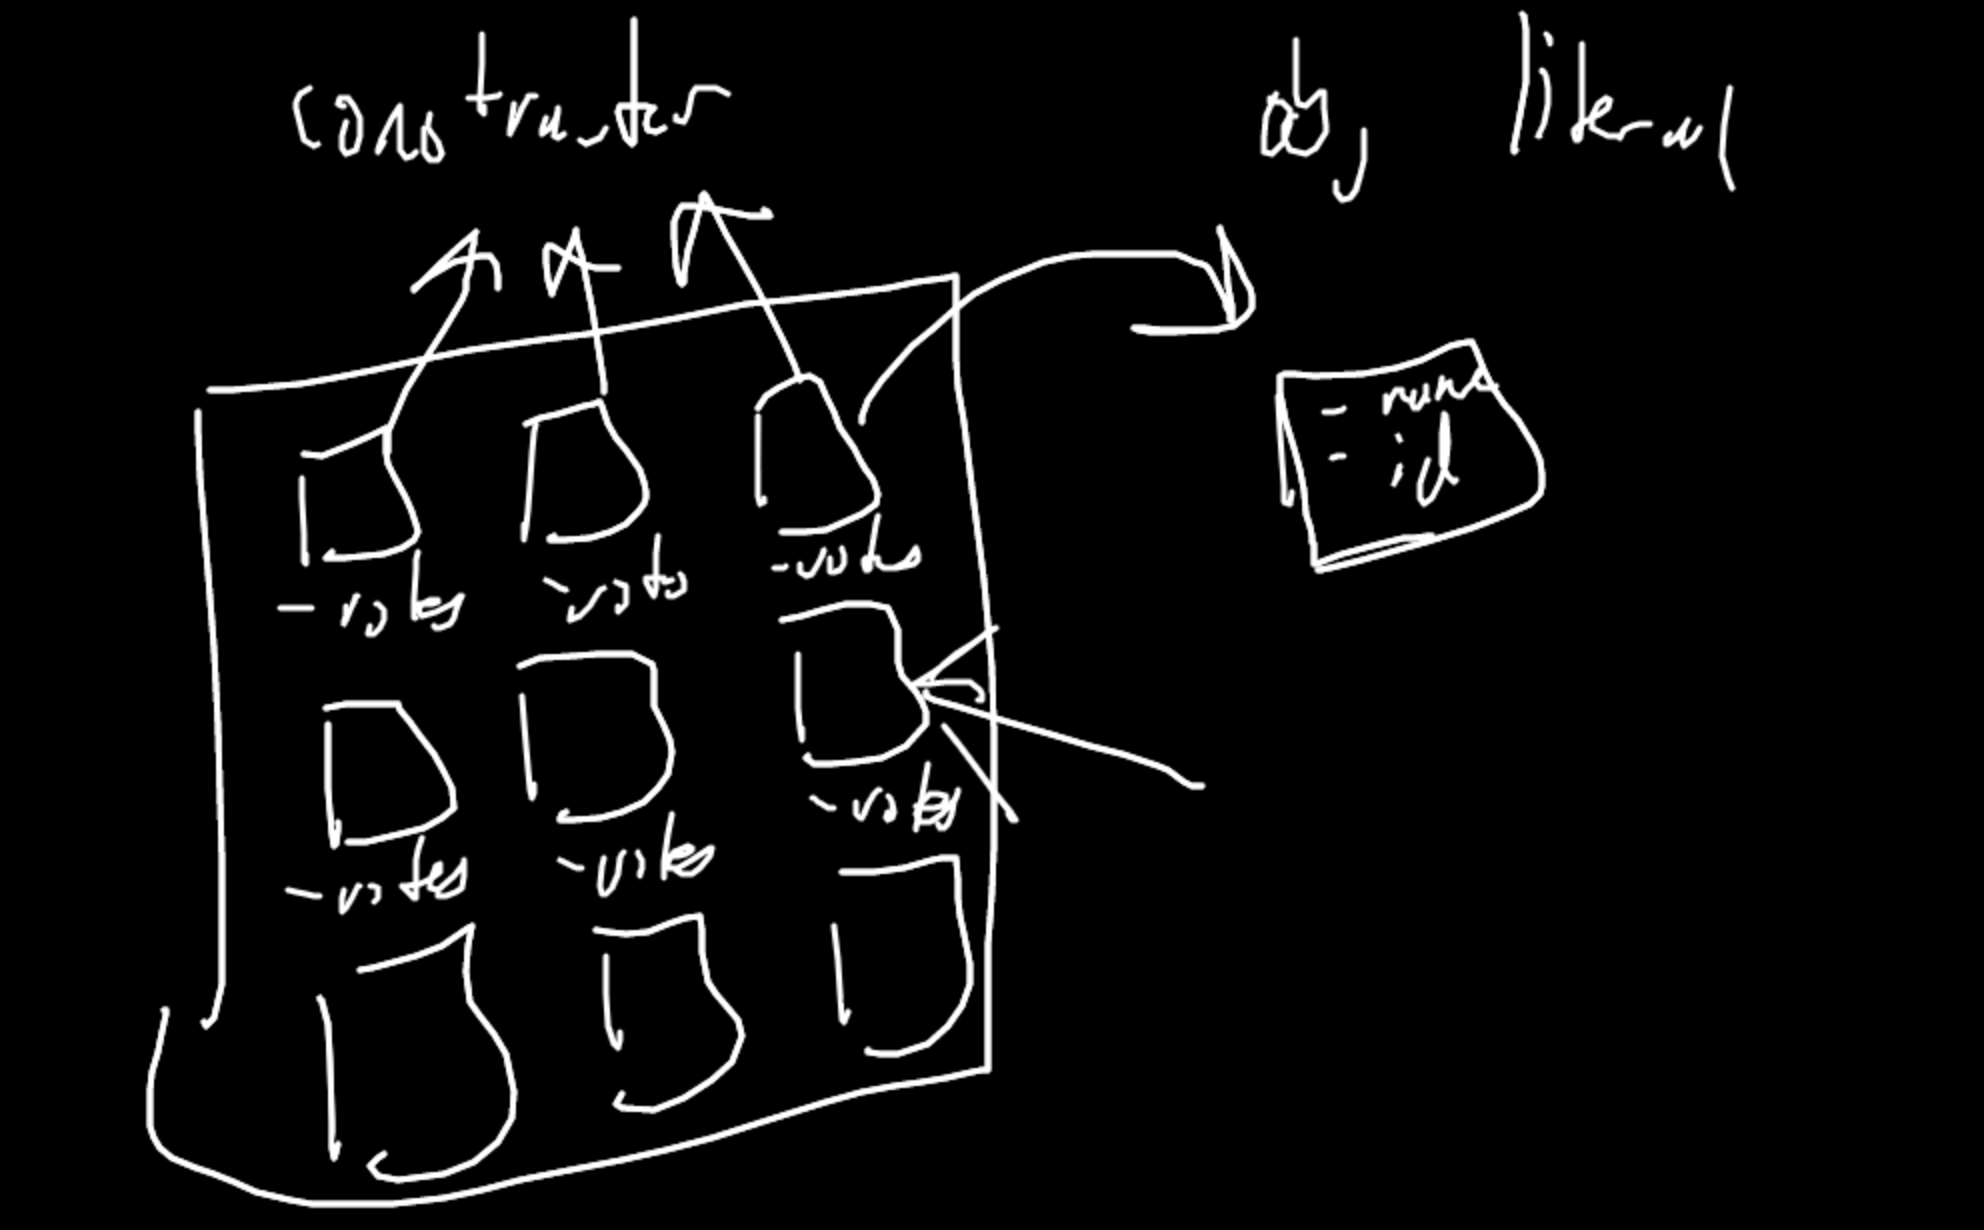 constructor obj literal
- name
- id
- votes - votes - votes
- votes - votes - votes